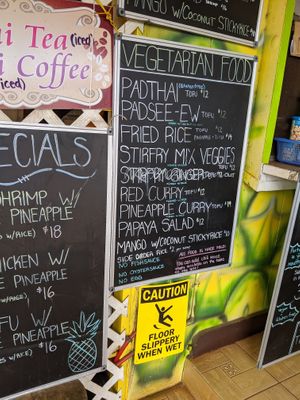 MANGO W/COCONUT STICKYRICE
ai Tea (iced)
i Coffee
(iced)
VEGETARIAN FOOD
PADTHAI TOFU $12
PADSEE-EW TOFU $12
FRIED RICE TOFU $12
STIRFRY MIX VEGGIES
STIRFRY GINGER
RED CURRY TOFU $12
PINEAPPLE CURRY
PAPAYA SALAD $12
MANGO W/COCONUT STICKYRICE $10
SIDE ORDER RICE $2
NO FISHSAUCE
NO OYSTERSAUCE
NO EGG
ECIALS
SHRIMP W/
PINEAPPLE
W/RICE) $18
CHICKEN W/
PINEAPPLE
$16
FU W/
PINEAPPLE
$16
CAUTION
FLOOR
SLIPPERY
WHEN WET